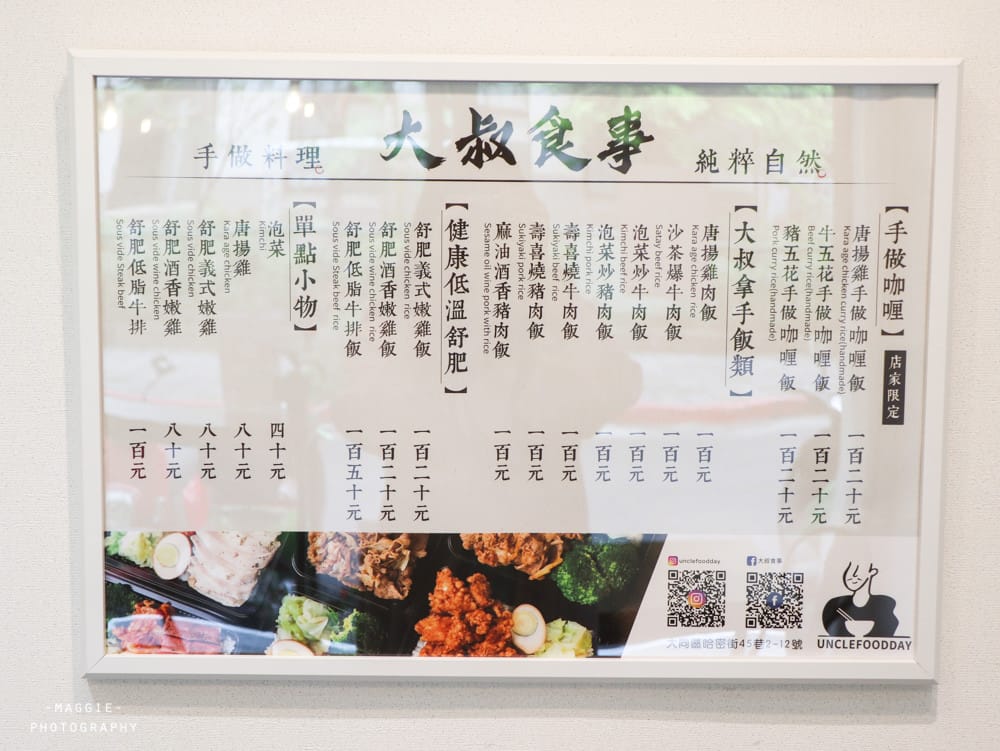 大叔食事
手做料理
純粹自然
【手做咖喱】
店家限定
唐揚雞手做咖喱飯
Kara age chicken curry rice(handmade)
一百二十元
牛五花手做咖喱飯
Beef curry rice(handmade)
一百二十元
豬五花手做咖喱飯
Pork curry rice(handmade)
一百二十元
【大叔拿手飯類】
唐揚雞肉飯
Kara age chicken rice
一百元
沙茶爆牛肉飯
Satay beef rice
一百元
泡菜炒牛肉飯
Kimchi beef rice
一百元
泡菜炒豬肉飯
Kimchi pork rice
一百元
壽喜燒牛肉飯
Sukiyaki beef rice
一百元
壽喜燒豬肉飯
Sukiyaki pork rice
一百元
麻油酒香豬肉飯
Sesame oil wine pork with rice
一百元
【健康低溫舒肥】
舒肥義式嫩雞飯
Sous vide chicken rice
一百二十元
舒肥酒香嫩雞飯
Sous vide wine chicken rice
一百二十元
舒肥低脂牛排飯
Sous vide Steak beef rice
一百五十元
【單點小物】
泡菜
Kimchi
四十元
唐揚雞
Kara age chicken
八十元
舒肥義式嫩雞
Sous vide chicken
八十元
舒肥酒香嫩雞
Sous vide wine chicken
八十元
舒肥低脂牛排
Sous vide Steak beef
一百元
unclefoodday
大叔食事
大同區哈密街45巷2-12號
UNCLEFOODDAY
-MAGGIE-
PHOTOGRAPHY